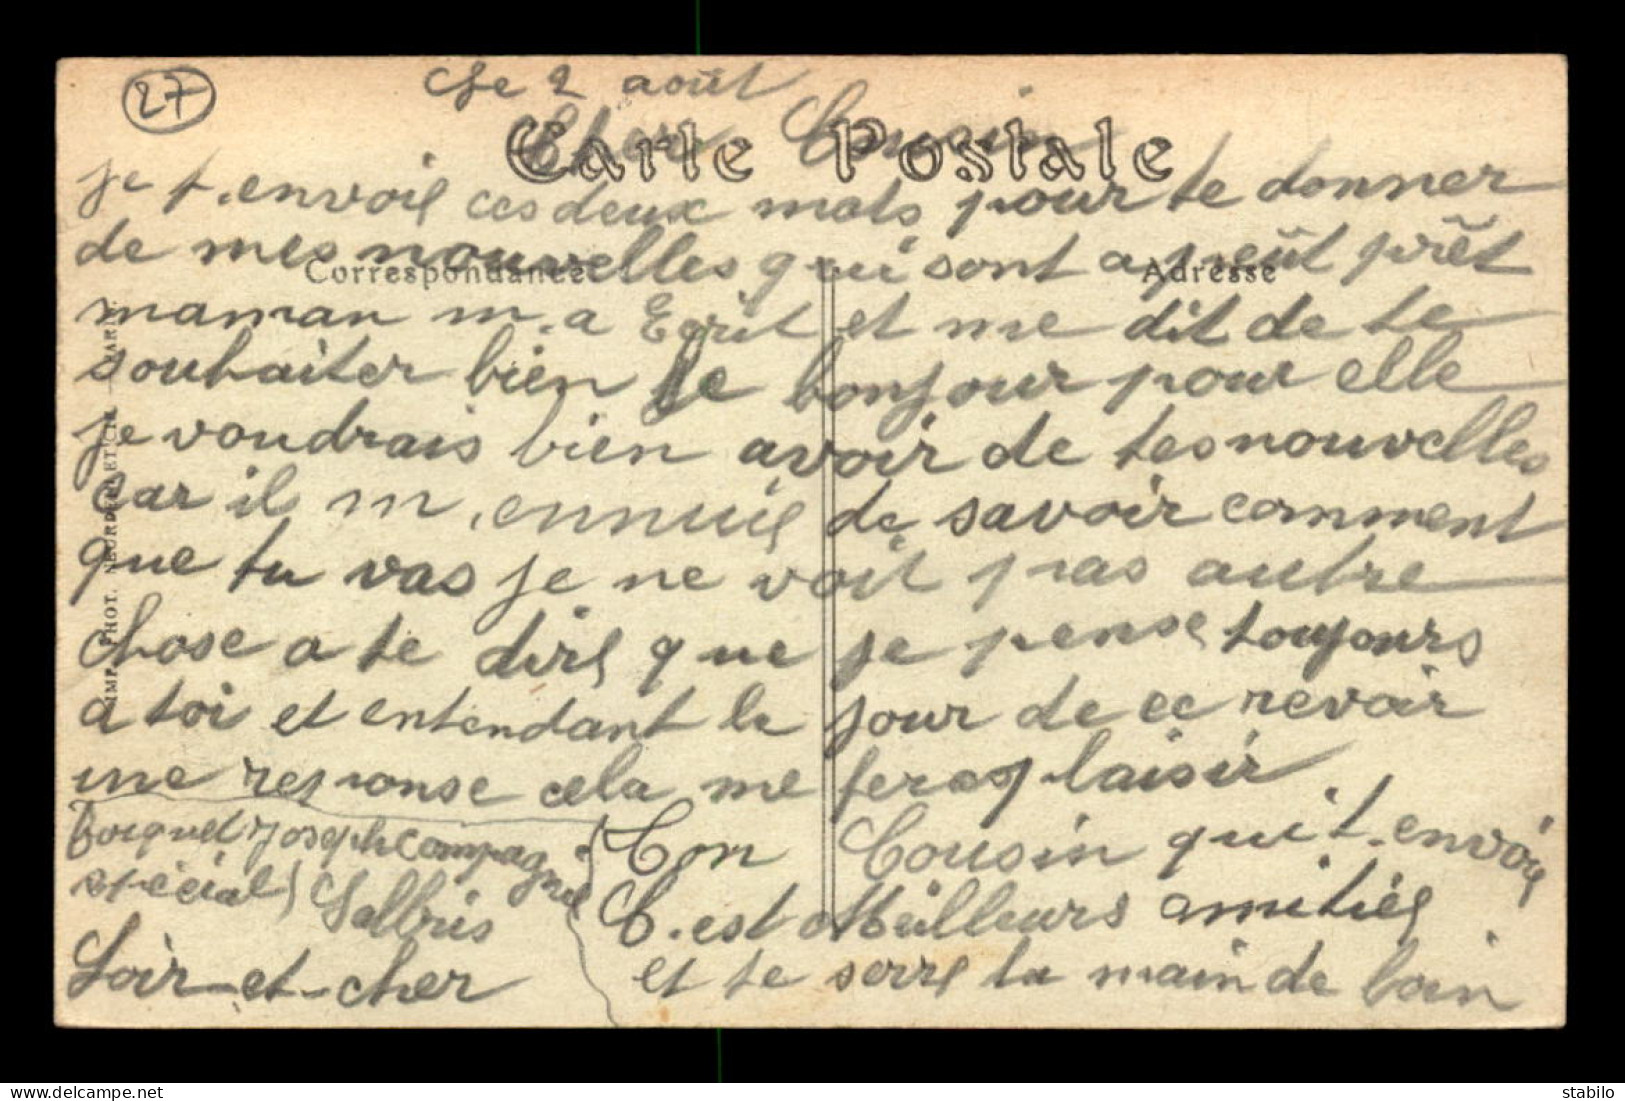 27
Le 2 août
Carte Postale
Cher Cousin
je t.envoie ces deux mots pour te donner
Correspondance
Adresse
de mes nouvelles qui sont a peût prêt
maman m.a Ecrit et me dit de te
souhaiter bien le bonjour pour elle
je voudrais bien avoir de tes nouvelles
car il m.ennuie de savoir comment
que tu vas je ne voit pas autre
chose a te dire que je pense toujours
a toi et entendant le jour de ce revoir
une response cela me feras plaisir
Ton Cousin qui t.envoie
C.est Meilleurs amitiés
et te serre la main de loin
Joseph Compagnie
spécial Salbris
Loir-et-cher
IMP. PHOT. NEURDEIN ET CIE. - PARIS.
stabilo